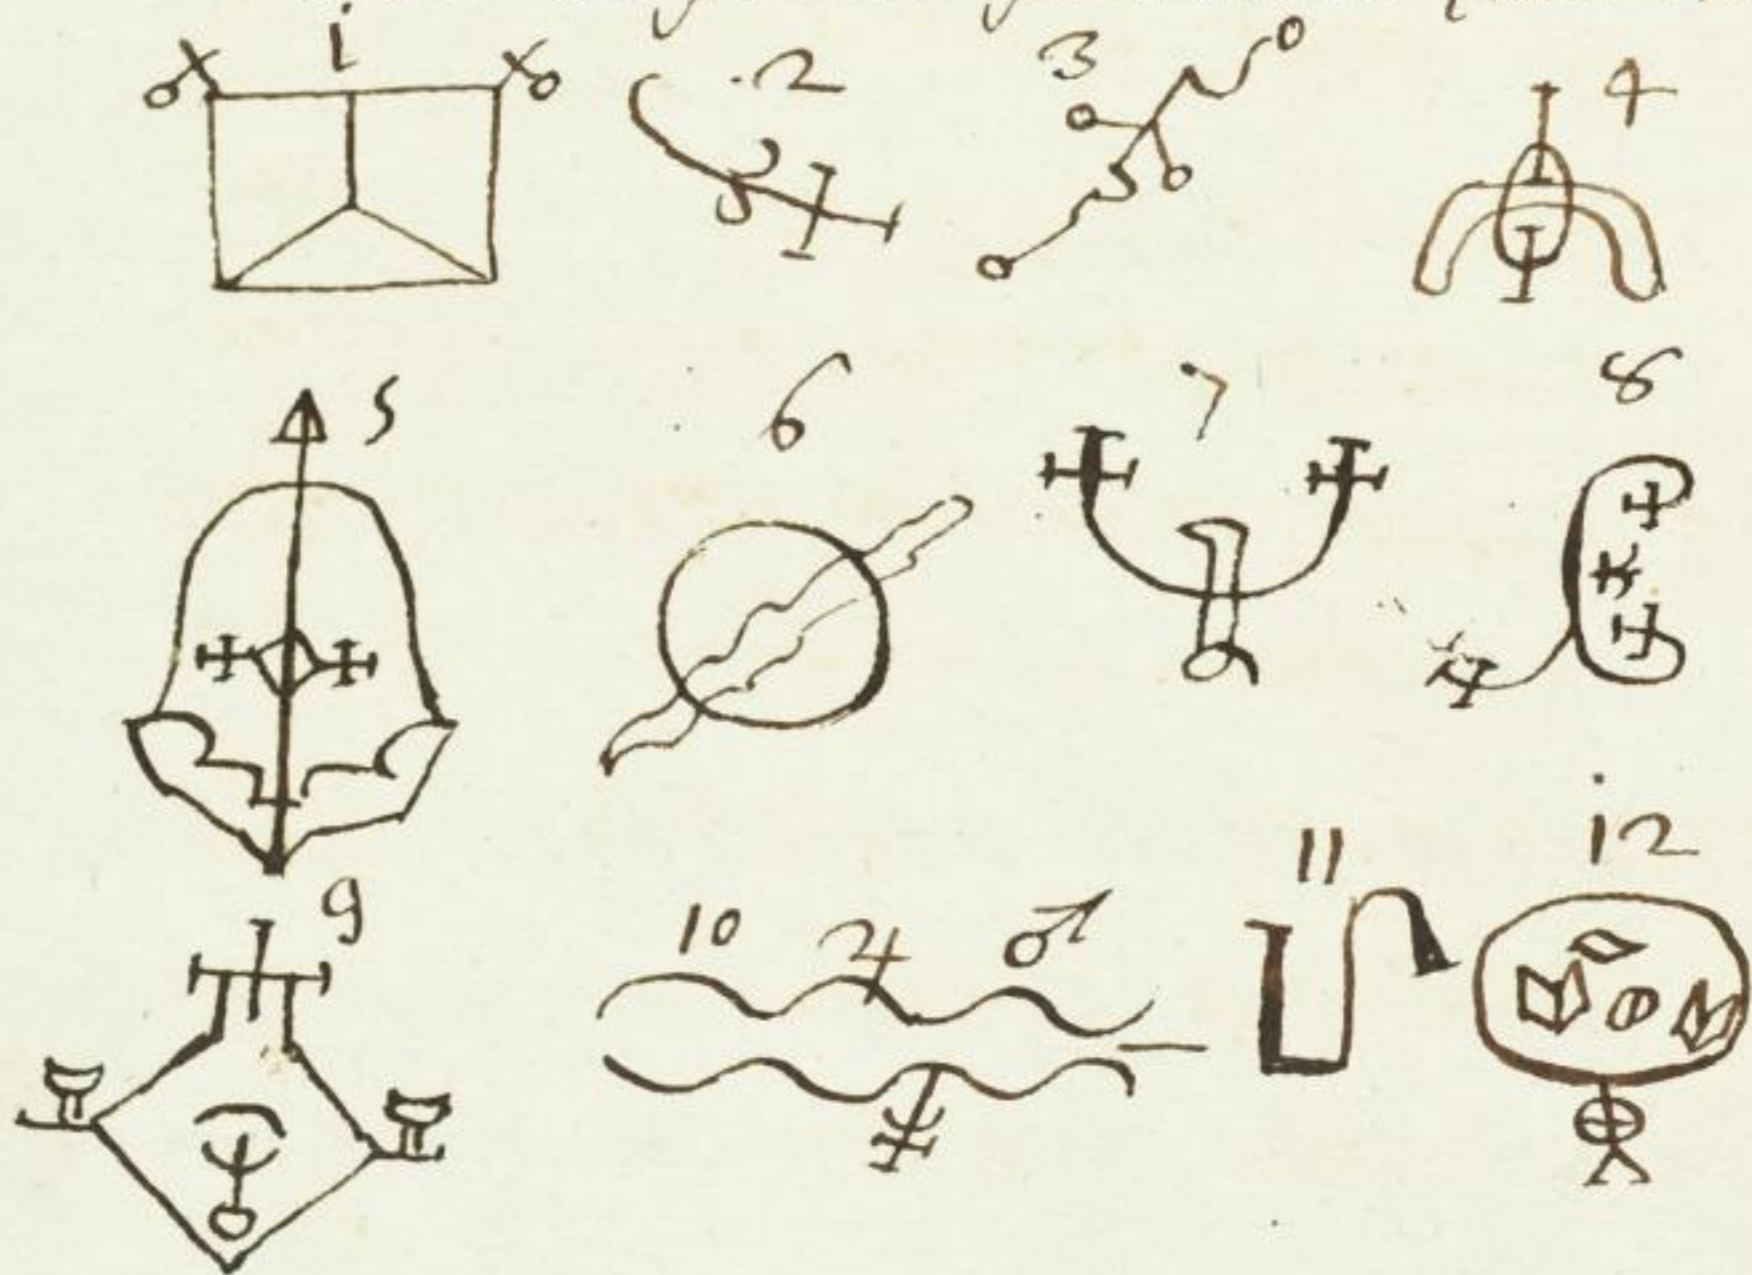 1 2 3 4
5 6 7 8
9 10 ♃ ♂ 11 12